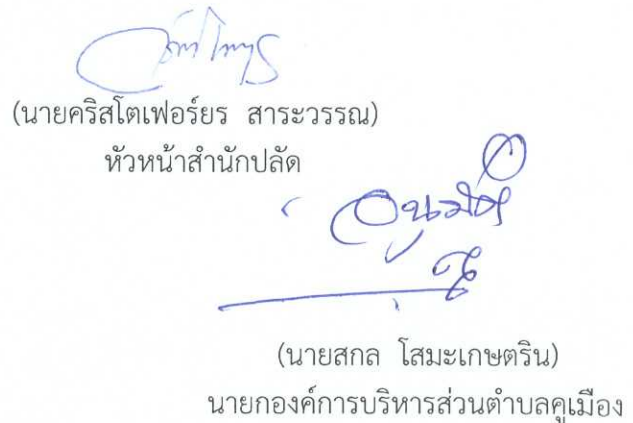 (นายคริสโตเฟอร์ยร สาระวรรณ)
หัวหน้าสำนักปลัด
อนุมัติ
(นายสกล โสมะเกษตริน)
นายกองค์การบริหารส่วนตำบลคูเมือง